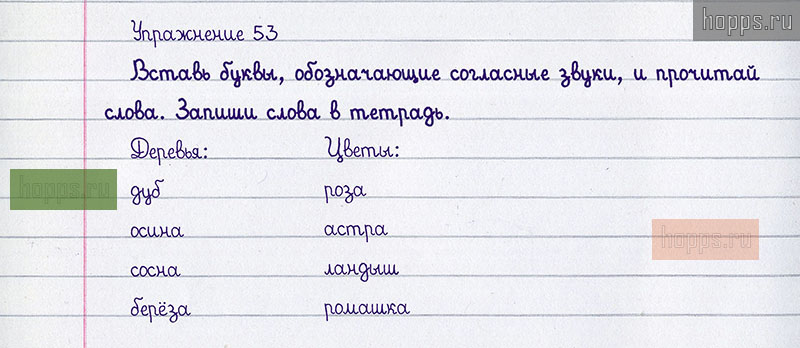 hopps.ru
Упражнение 53
Вставь буквы, обозначающие согласные звуки, и прочитай
слова. Запиши слова в тетрадь.
Деревья: Цветы:
hopps.ru
дуб роза
осина астра
hopps.ru
сосна ландыш
берёза ромашка